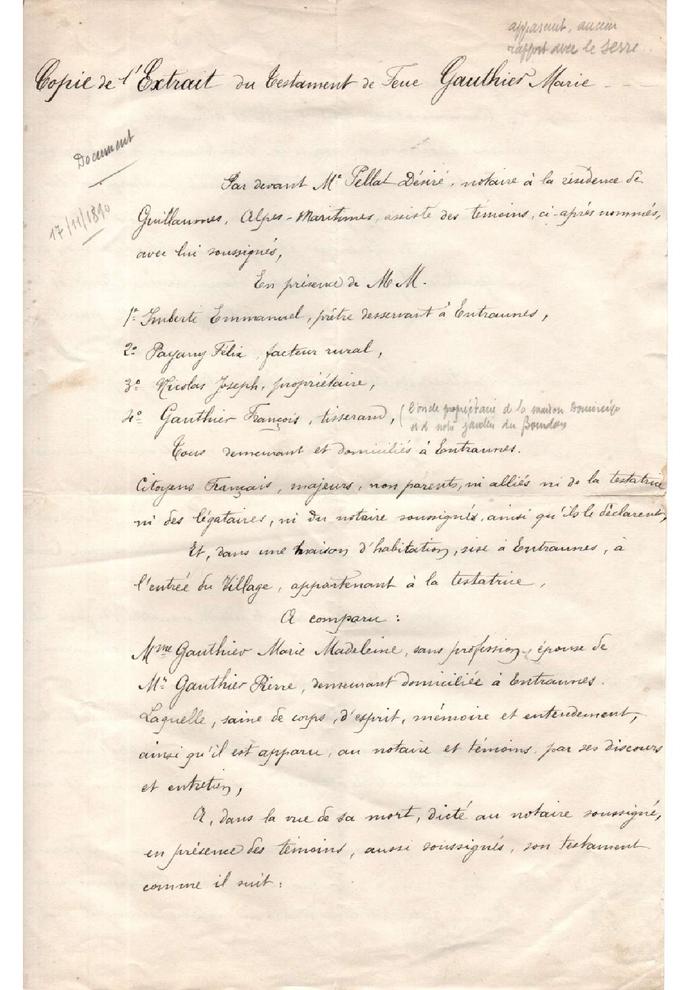 apparemt, aucun
rapport avec le serre
Copie de l'Extrait du Testament de Feue Gauthier Marie
Document
17/11/1890
Par devant Me Pellat Désiré, notaire à la résidence de
Guillaumes, Alpes-Maritimes, assisté des témoins, ci-après nommés,
avec lui soussignés,
En présence de M.M.
1º Imberti Emmanuel, prêtre desservant à Entraunes,
2º Payany Félix, facteur rural,
3º Nicolas Joseph, propriétaire,
4º Gauthier François, tisserand, (l'oncle propriétaire de la maison
et de notre jardin du Bourdou
Tous demeurant et domiciliés à Entraunes.
Citoyens Français, majeurs, non parents, ni alliés ni de la testatrice
ni des légataires, ni du notaire soussignés, ainsi qu'ils le déclarent,
Et, dans une maison d'habitation, sise à Entraunes, à
l'entrée du Village, appartenant à la testatrice,
A comparu :
Mme Gauthier Marie Madeleine, sans profession, épouse de
Mr Gauthier Pierre, demeurant domiciliée à Entraunes.
Laquelle, saine de corps, d'esprit, mémoire et entendement,
ainsi qu'il est apparu, au notaire et témoins par ses discours
et entretien,
A, dans la vue de sa mort, dicté au notaire soussigné,
en présence des témoins, aussi soussignés, son testament
comme il suit :